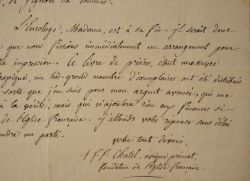 L'Eucologe, Madame, est à sa fin. Il serait donc
que nous fissions immédiatement un arrangement pour
impression. Le livre de prières, étant
un très-grand nombre d'exemplaires ont été distribués
sorte que j'en suis pour mon argent avancé, que
à la vérité, mais que n'ajoutera rien aux finances
de l'Eglise-française. J'attends votre réponse sans délai
prendre un parti.
votre tout dévoué,
† F. F. Chatel, évêque primat,
fondateur de l'église française.